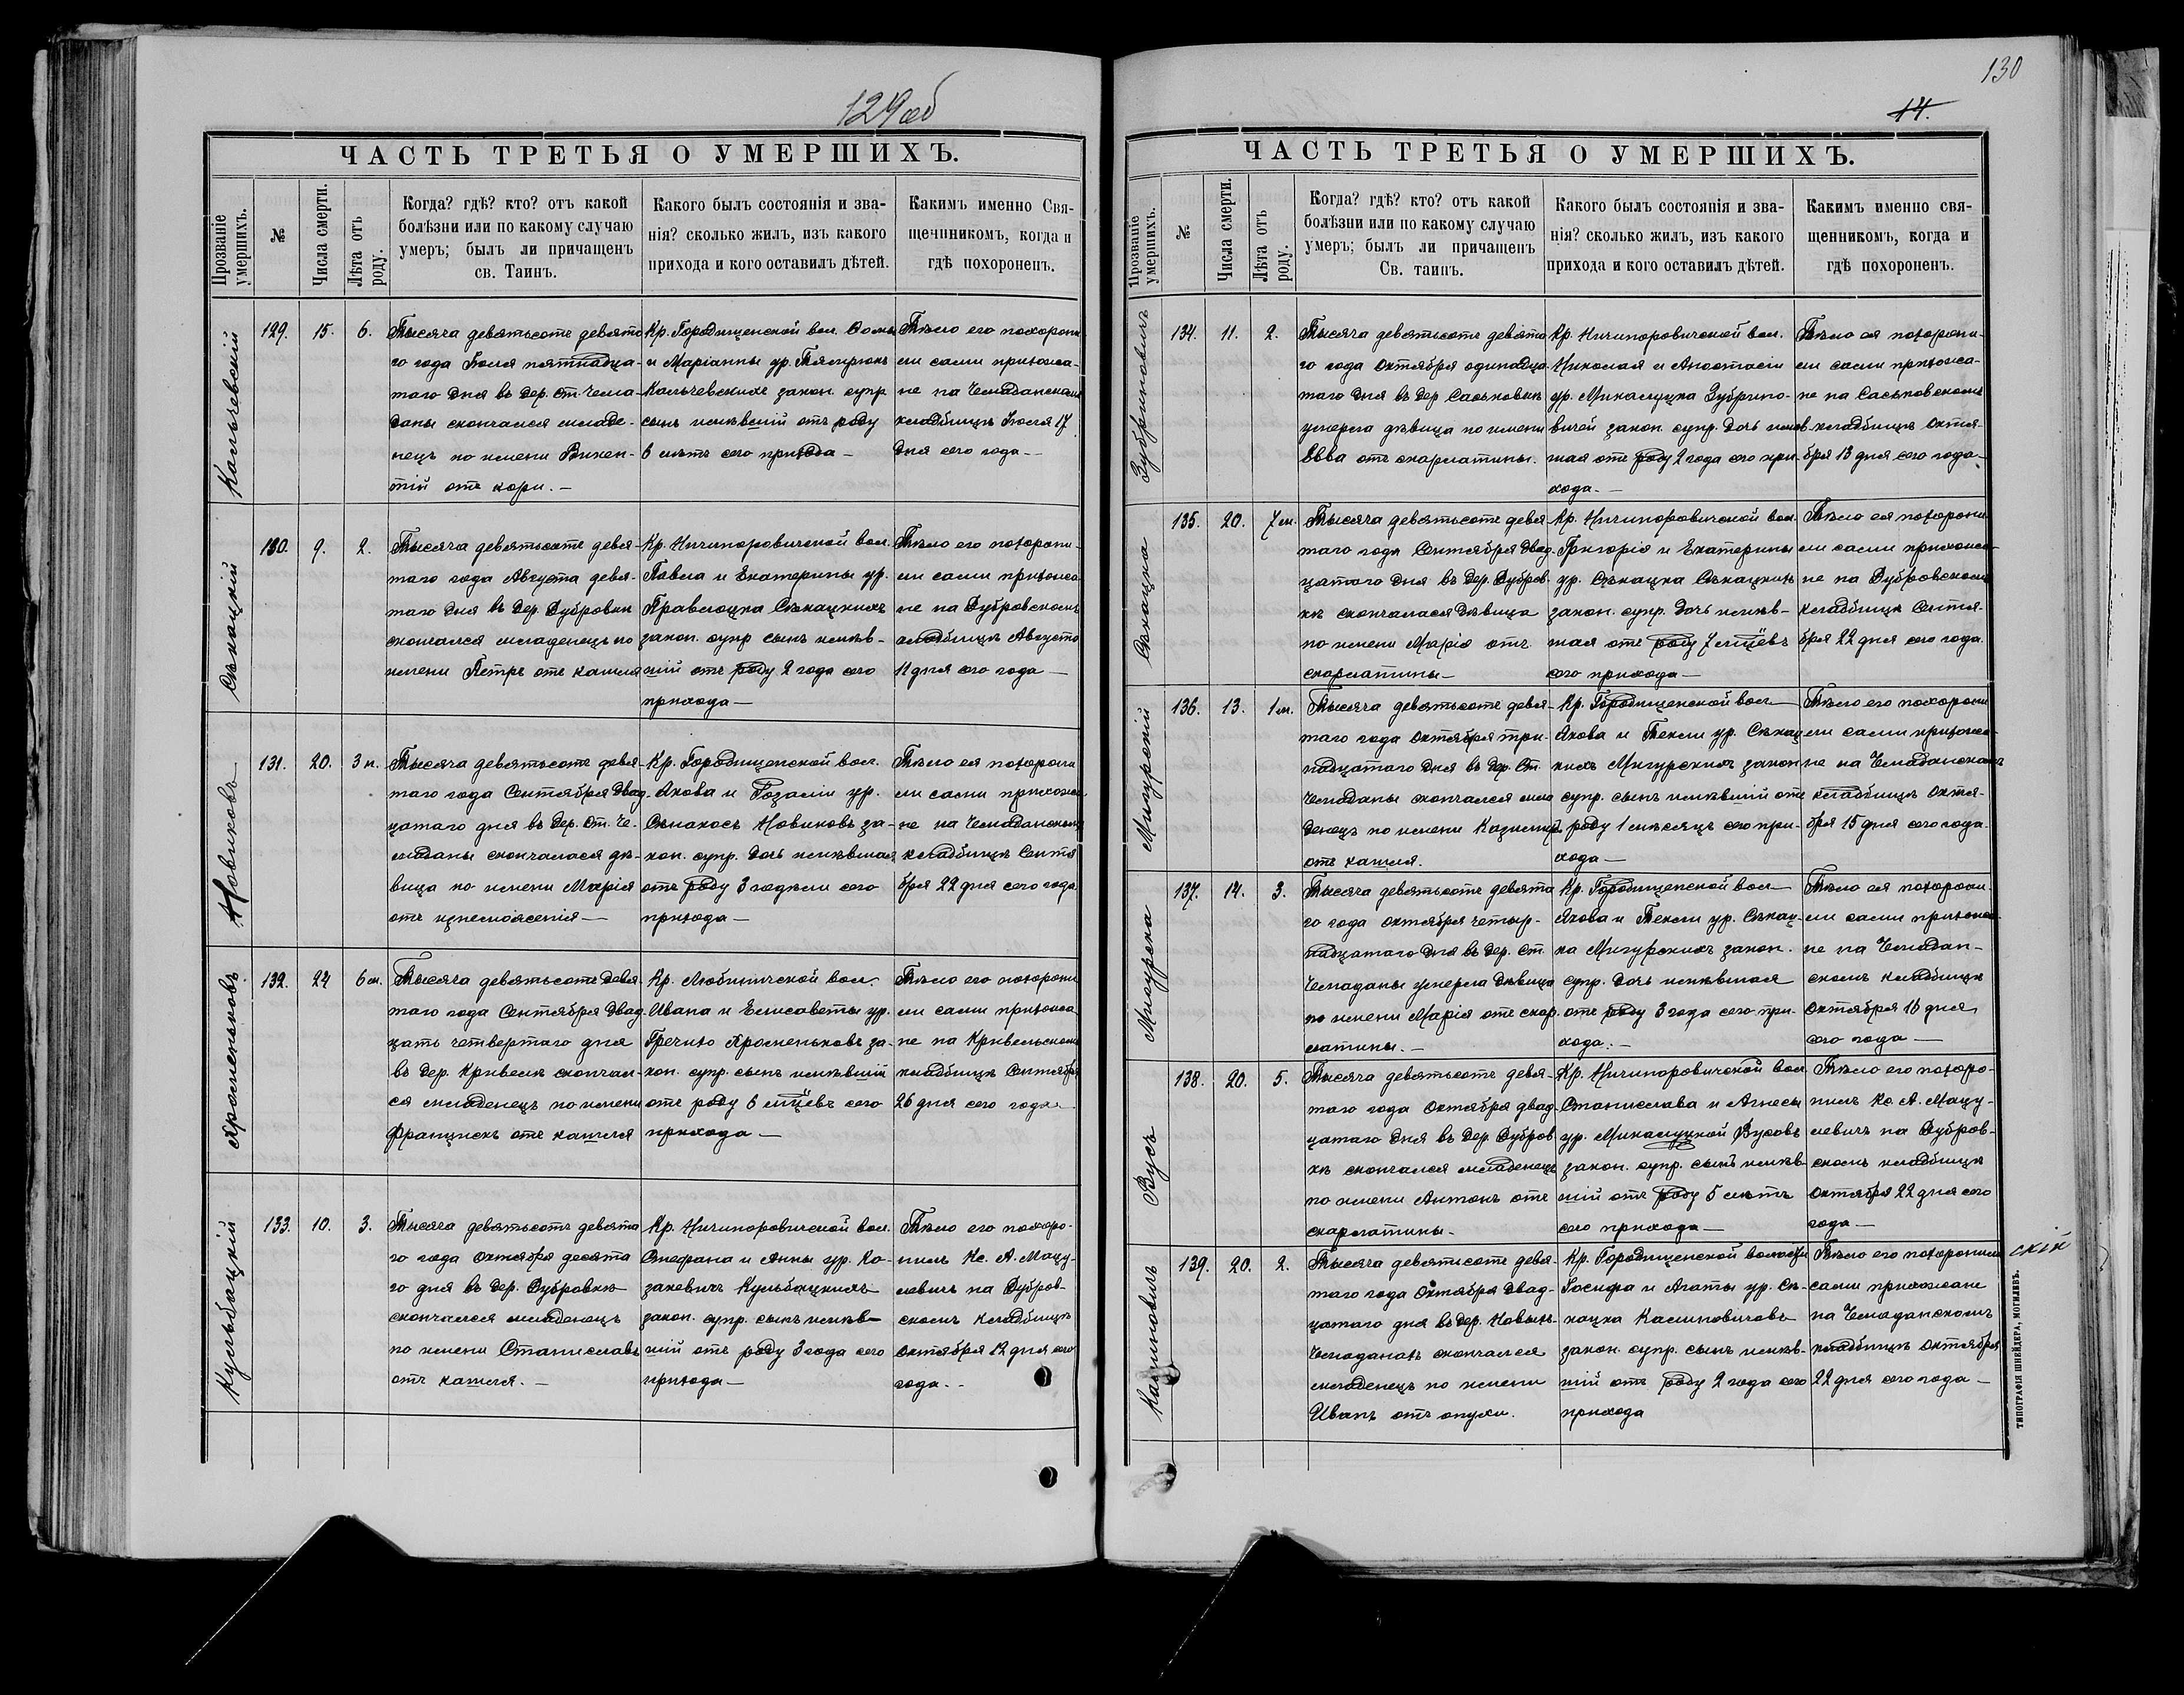 129 об
ЧАСТЬ ТРЕТЬЯ О УМЕРШИХЪ.
Прозваніе умершихъ.
№
Числа смерти.
Лѣта отъ роду.
Когда? гдѣ? кто? отъ какой
болѣзни или по какому случаю
умеръ; былъ ли причащенъ
св. Таинъ.
Какого былъ состоянія и зва-
нія? сколько жилъ, изъ какого
прихода и кого оставилъ дѣтей.
Какимъ именно Свя-
щенникомъ, когда и
гдѣ похороненъ.
Кальчевскій
129.
15.
6.
Тысяча девятьсотъ девято
го года Іюля пятнадца-
таго дня въ дер. Ст. Чема-
даны скончался младе-
нецъ по имени Викен-
тій отъ кори. —
Кр. Городищенской вол. Ѳомы
и Маріанны ур.
Кальчевскихъ закон. супр
сынъ имѣвшій отъ роду
6 лѣтъ сего прихода —
Тѣло его похорони
ли сами прихожа-
не на Чемаданскомъ
кладбищѣ Іюля 17
дня сего года —
Сѣкацкій
130.
9.
2.
Тысяча девятьсотъ девя-
таго года Августа девя-
таго дня въ дер. Дубровкѣ
скончался младенецъ по
имени Петръ отъ кашля
Кр. Ничипоровичской вол.
Павла и Екатерины ур.
Сѣкацкихъ
закон. супр сынъ имѣв-
шій отъ роду 2 года сего
прихода —
Тѣло его похорони-
ли сами прихожа
не на Дубровскомъ
кладбищѣ Августа
11 дня сего года —
Новиковъ
131.
20.
3 н.
Тысяча девятьсотъ девя-
таго года Сентября двад-
цатаго дня въ дер. Ст. Че-
маданы скончалася дѣ-
вица по имени Марія
отъ изнеможенія —
Кр. Городищенской вол.
Якова и Розаліи ур.
Новиковъ за-
кон. супр. дочь имѣвшая
отъ роду 3 недѣли сего
прихода —
Тѣло ея похорони
ли сами прихожа
не на Чемаданскомъ
кладбищѣ Сентя
бря 22 дня сего года
Хроменьковъ
132.
24
6 м.
Тысяча девятьсотъ девя-
таго года Сентября двад-
цать четвертаго дня
въ дер. Кривелѣ скончал-
ся младенецъ по имени
Францискъ отъ кашля
Кр. Любиничской вол.
Ивана и Елисаветы ур.
Гречихо Хроменьковъ за-
кон. супр. сынъ имѣвшій
отъ роду 6 мѣцевъ сего
прихода —
Тѣло его похорони
ли сами прихожа
не на Кривельскомъ
кладбищѣ Сентября
26 дня сего года
Кульбацкій
133.
10.
3.
Тысяча девятьсотъ девята
го года Октября десята
го дня въ дер. Дубровкѣ
скончался младенецъ
по имени Станиславъ
отъ кашля. —
Кр. Ничипоровичской вол.
Стефана и Анны ур. Ко-
закевичъ Кульбацкихъ
закон. супр. сынъ имѣв-
шій отъ роду 3 года сего
прихода —
Тѣло его похоро-
нилъ Кс. А. Мацу-
левичъ на Дубров-
скомъ кладбищѣ
Октября 12 дня сего
года. -
130
14.
ЧАСТЬ ТРЕТЬЯ О УМЕРШИХЪ.
Прозваніе умершихъ.
№
Числа смерти.
Лѣта отъ роду.
Когда? гдѣ? кто? отъ какой
болѣзни или по какому случаю
умеръ; былъ ли причащенъ
Св. таинъ.
Какого былъ состоянія и зва-
нія? сколько жилъ, изъ какого
прихода и кого оставилъ дѣтей.
Какимъ именно свя-
щенникомъ, когда и
гдѣ похороненъ.
Зубриновичъ
134.
11.
2.
Тысяча девятьсотъ девята
го года Октября одинадца
таго дня въ дер Саськовкѣ
умерла дѣвица по имени
Евва отъ скарлатины.
Кр. Ничипоровичской вол.
Николая и Анастасіи
ур. Микалуцка Зубрино-
вичей закон. супр. дочь имѣв-
шая отъ роду 2 года сего при-
хода. —
Тѣло ея похорони-
ли сами прихожа-
не на Саськовскомъ
кладбищѣ Октя-
бря 13 дня сего года
Сѣкацка
135.
20.
7 м.
Тысяча девятьсотъ девя-
таго года Сентября двад-
цатаго дня въ дер. Дубров-
кѣ скончалася дѣвица
по имени Марія отъ
скарлатины —
Кр. Ничипоровичской вол.
Григорія и Екатерины
ур. Сѣкацка Сѣкацкихъ
закон. супр. дочь имѣв-
шая отъ роду 7 мѣцевъ
сего прихода —
Тѣло ея похорони
ли сами прихожа-
не на Дубровскомъ
кладбищѣ Сентя-
бря 22 дня сего года.
Мигурскій
136.
13.
1 м.
Тысяча девятьсотъ девя-
таго года Октября три-
надцатаго дня въ дер. Ст.
Чемаданы скончался мла
денецъ по имени Казимиръ
отъ кашля.
Кр. Городищенской вол —
Якова и Теклы ур. Сѣкац-
кихъ Мигурскихъ закон
супр. сынъ имѣвшій отъ
роду 1 мѣсяцъ сего при-
хода —
Тѣло его похорони
ли сами прихожа-
не на Чемаданскомъ
кладбищѣ Октя-
бря 15 дня сего года.
Мигурска
137.
14.
3.
Тысяча девятьсотъ девята
го года Октября четыр-
надцатаго дня въ дер. Ст.
Чемаданы умерла дѣвица
по имени Марія отъ скар-
латины. —
Кр. Городищенской вол —
Якова и Теклы ур. Сѣкац-
ка Мигурскихъ закон.
супр. дочь имѣвшая
отъ роду 3 года сего при-
хода. —
Тѣло ея похорони-
ли сами прихожа-
не на Чемадан-
скомъ кладбищѣ
Октября 16 дня
сего года —
Вусъ
138.
20.
5.
Тысяча девятьсотъ девя-
таго года Октября двад-
цатаго дня въ дер. Дубров
кѣ скончался младенецъ
по имени Антонъ отъ
скарлатины.
Кр. Ничипоровичской вол
Станислава и Агнесы
ур. Микалуцкой Вусовъ
закон. супр. сынъ имѣв-
шій отъ роду 5 лѣтъ
сего прихода —
Тѣло его похоро-
нилъ Кс. А. Мацу-
левичъ на Дубров-
скомъ кладбищѣ
Октября 22 дня сего
года —
Калиновичъ
139.
20.
2.
Тысяча девятисотъ девя-
таго года Октября двад-
цатаго дня въ дер. Новыхъ
Чемаданахъ скончался
младенецъ по имени
Иванъ отъ опухи.
Кр. Городищенской волости
Іосифа и Агаты ур. Сѣ-
кацка Калиновичовъ
закон. супр. сынъ имѣв-
шій отъ роду 2 года сего
прихода
Тѣло его похоронили
сами прихожане
на Чемаданскомъ
кладбищѣ Октября
22 дня сего года —
скій
ТИПОГРАФІЯ ШНЕЙДЕРА, МОГИЛЕВЪ.